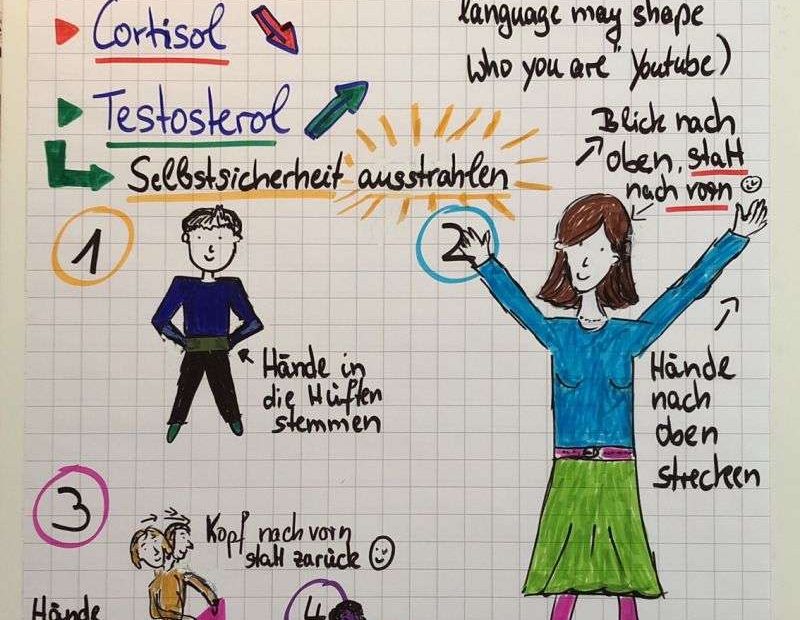 Cortisol
language may shape
who you are" Youtube)
Testosterol
Selbstsicherheit ausstrahlen
Blick nach
oben, statt
nach vorn
1
2
Hände in
die Hüften
stemmen
Hände
nach
oben
strecken
3
Kopf nach vorn
statt zurück
Hände
4